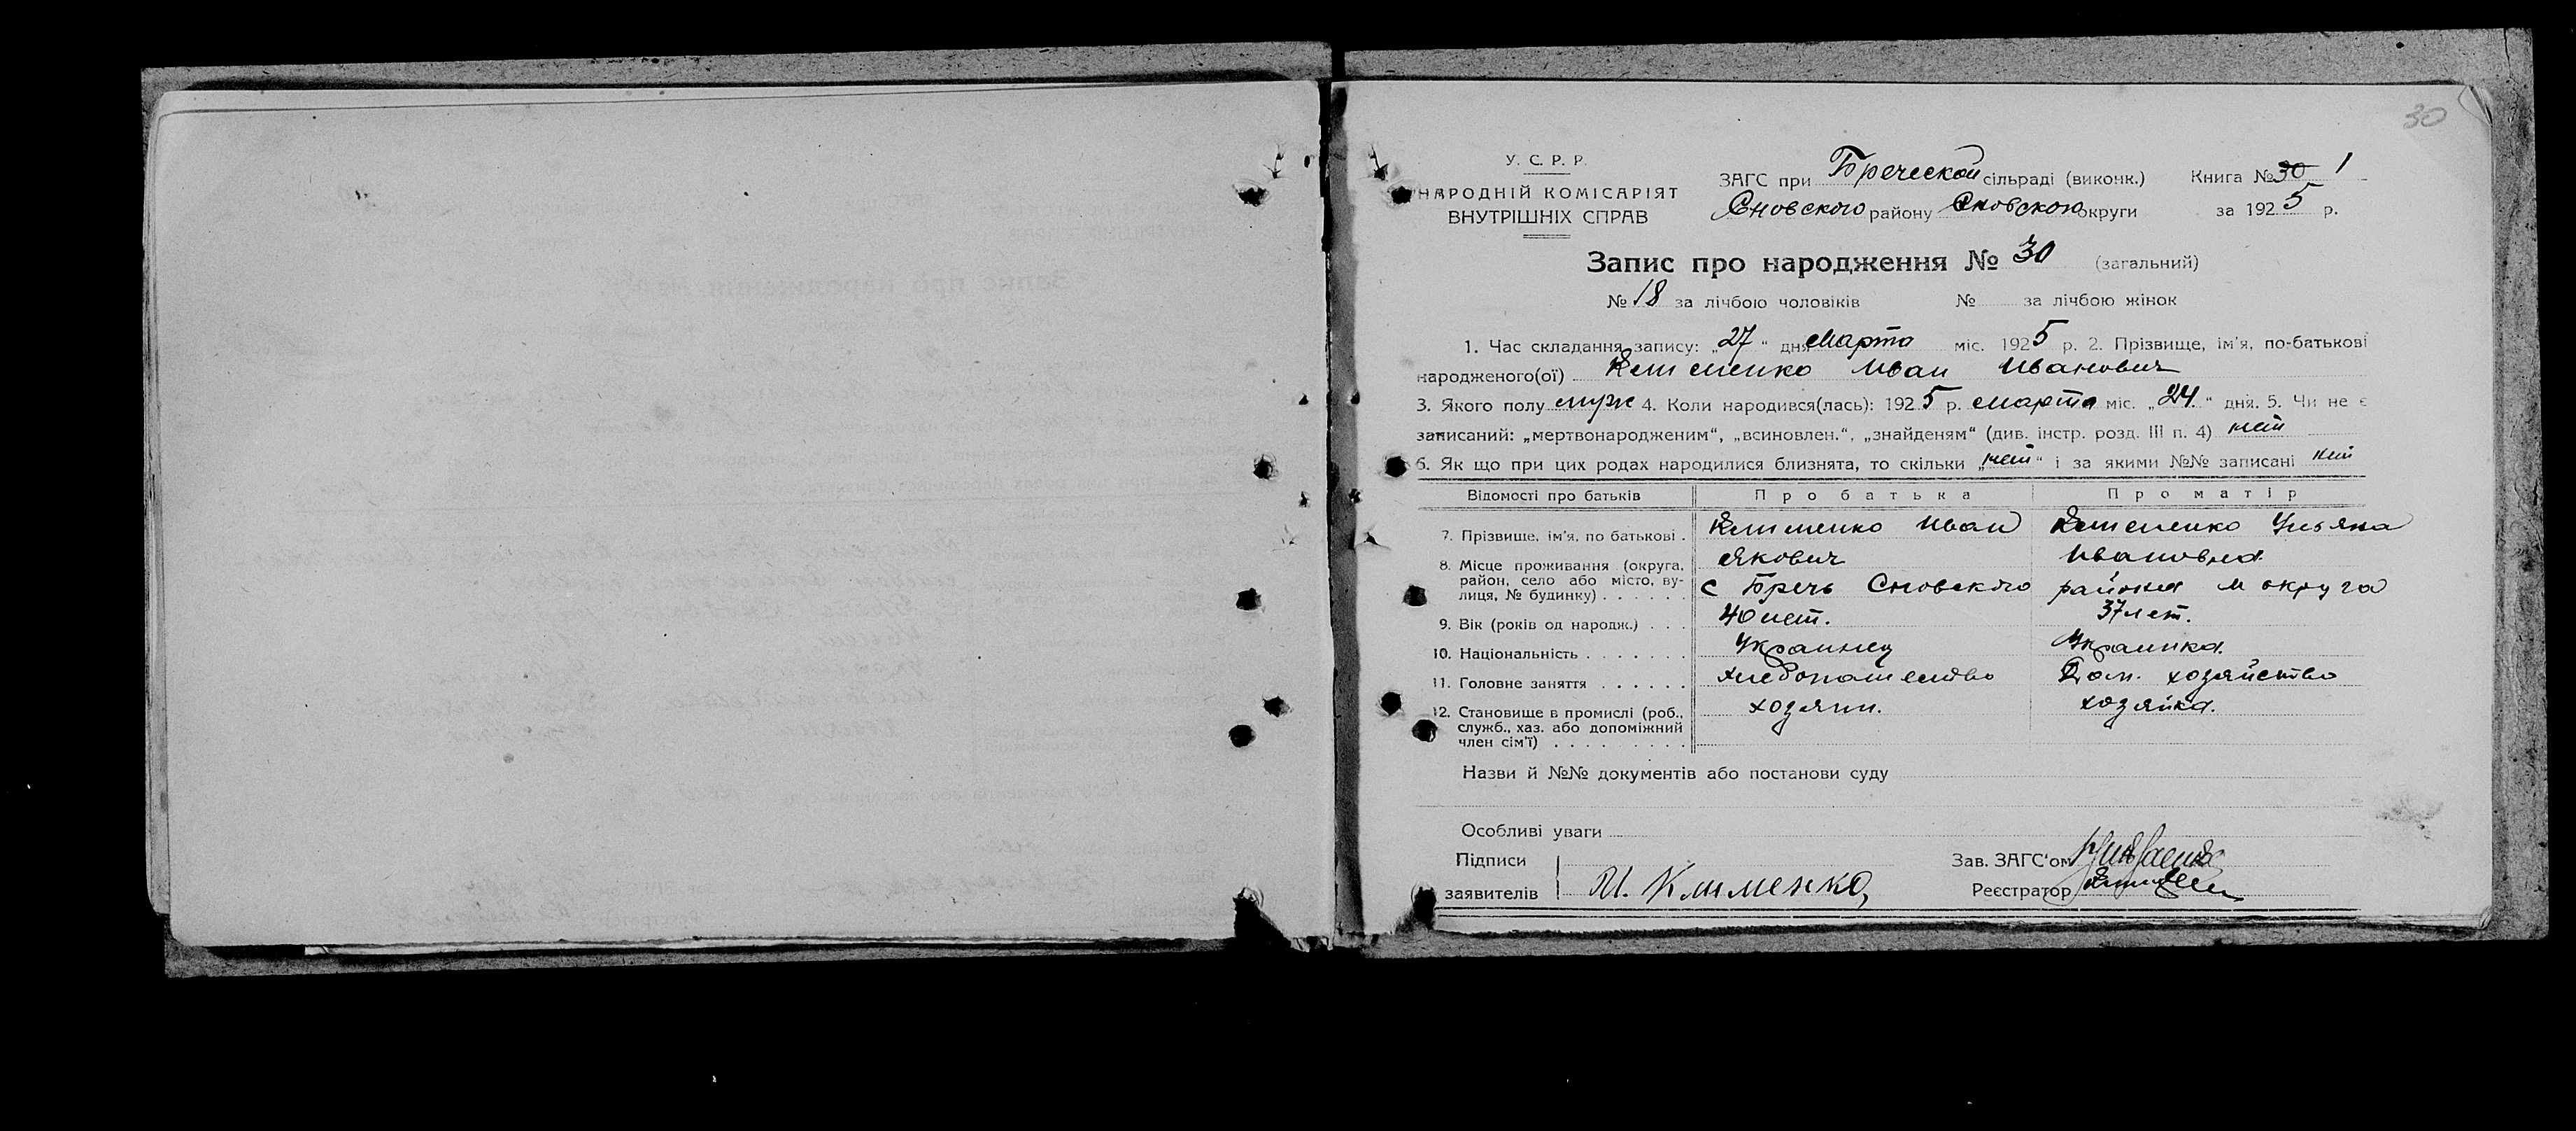 30
У. С. Р. Р.
НАРОДНІЙ КОМІСАРІЯТ
ВНУТРІШНІХ СПРАВ
ЗАГС при Бреческой сільраді (виконк.) Книга № 30 1
Сновского району Сновского округи за 1925 р.
Запис про народження № 30 (загальний)
№ 18 за лічбою чоловіків № за лічбою жінок
1. Час складання запису: „27“ дня Марта міс. 1925 р. 2. Прізвище, ім'я, по-батькові
народженого(ої) Клименко Иван Иванович
3. Якого полу муж 4. Коли народився(лась): 1925 р. марта міс. „24“ дня. 5. Чи не є
записаний: „мертвонародженим“, „всиновлен.“, „знайденям“ (див. інстр. розд. III п. 4) нет
6. Як що при цих родах народилися близнята, то скільки „нет“ і за якими №№ записані нет
Відомості про батьків Про батька Про матір
7. Прізвище, ім'я, по батькові . Клименко Иван Клименко Ульяна
Якович Ивановна
8. Місце проживання (округа, район, село або місто, вулиця, № будинку) . . . . . . с Бречь Сновского района и округа
9. Вік (років од народж.) . . . 40 лет. 37 лет.
10. Національність . . . . . . . Украинец Украинка.
11. Головне заняття . . . . . . хлебопашество Дом. хозяйство
12. Становище в промислі (роб., хозяин. хозяйка.
служб., хаз. або допоміжний
член сім'ї) . . . . . . . . .
Назви й №№ документів або постанови суду
Особливі уваги
Підписи Зав. ЗАГС'ом
заявителів И. Клименко, Реєстратор